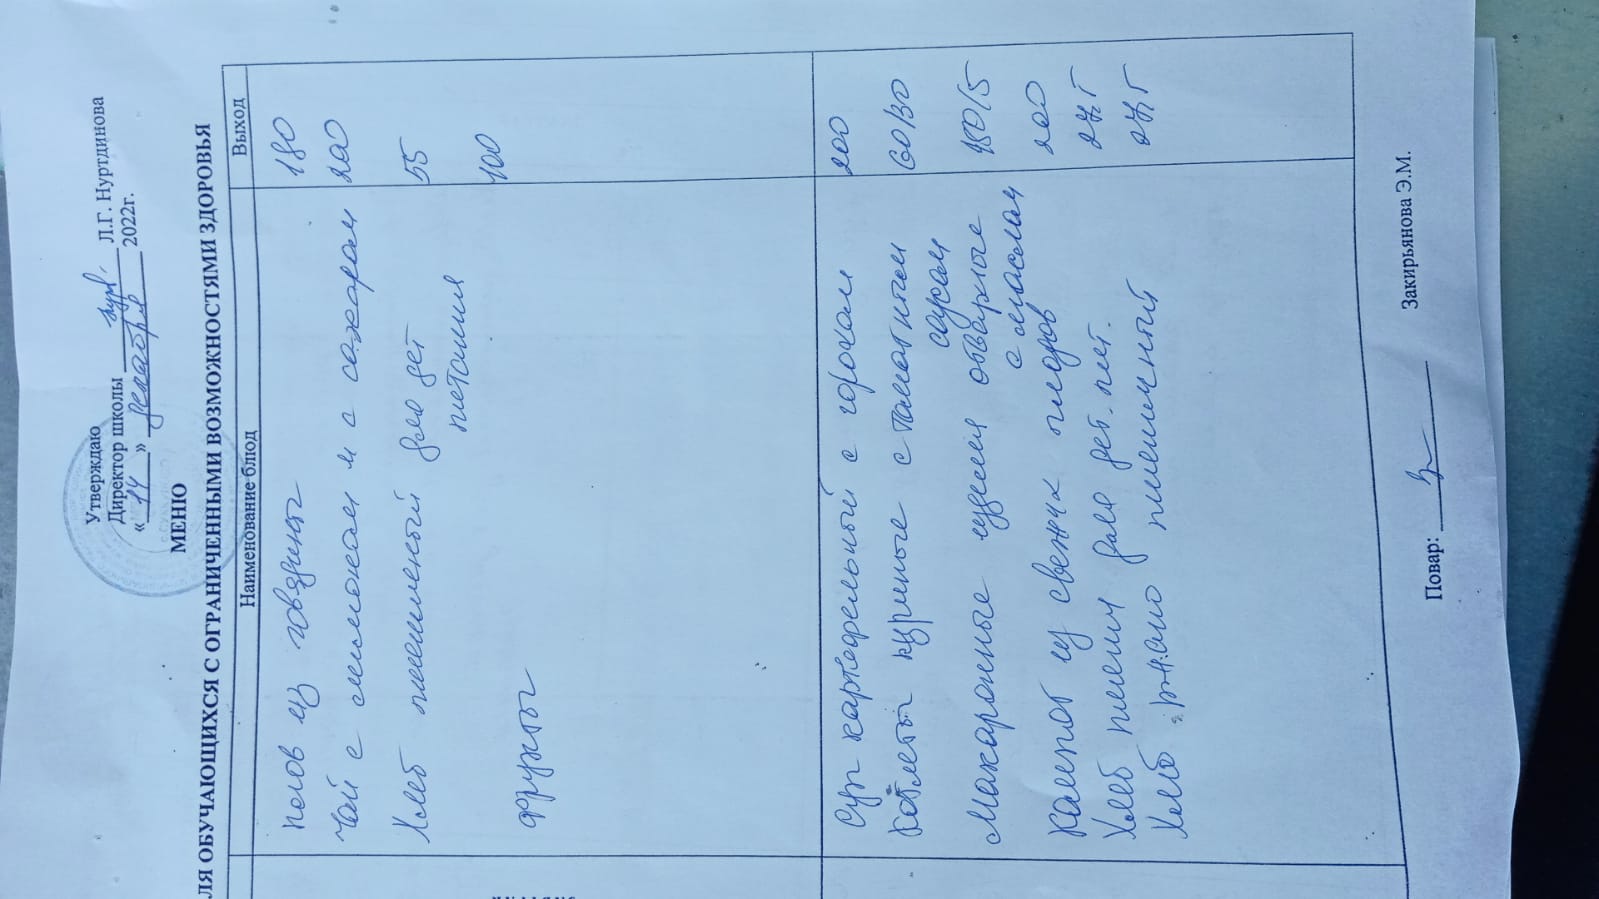 Утверждаю
Директор школы Л.Г. Нуртдинова
« 14 » декабря 2022г.
МЕНЮ
ЛЯ ОБУЧАЮЩИХСЯ С ОГРАНИЧЕННЫМИ ВОЗМОЖНОСТЯМИ ЗДОРОВЬЯ
Наименование блюд Выход
плов из говядины 180
Чай с лимоном и с сахаром 200
Хлеб пшеничный для дет 55
питания
фрукты 100
Суп картофельный с горохом 200
Котлеты куриные с томатным 60/30
соусом
Макаронные изделия отварные 150/5
с маслом
Компот из свежих плодов 200
Хлеб для дет. пит.
Хлеб ржано пшеничный
Повар: Закирьянова Э.М.